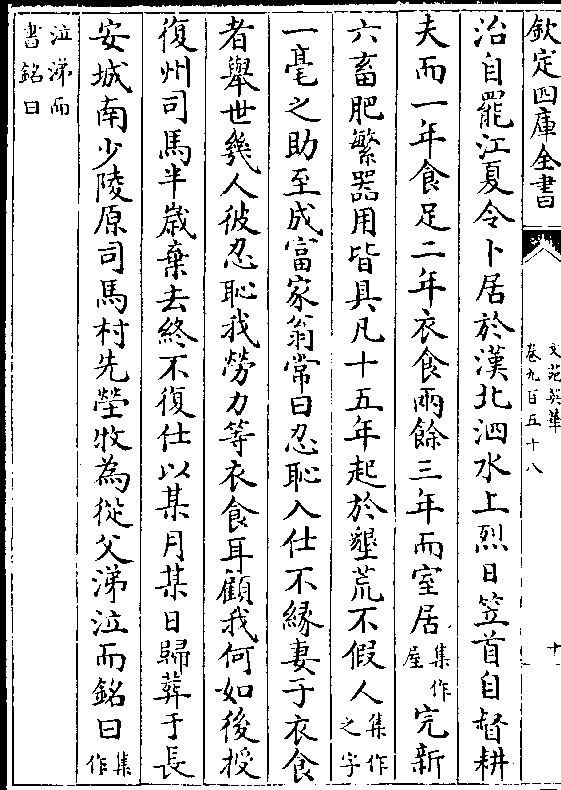 欽定四庫全書
文苑英華
卷九百五十八
十一
治自罷江夏令卜居於漢北泗水上烈日笠首自督耕
夫而一年食足二年衣食兩餘三年而室居集作屋完新
六畜肥繁器用皆具凡十五年起於墾荒不假人集作之字
一毫之助至成富家翁常曰忍恥入仕不緣妻子衣食
者舉世幾人彼忍恥我勞力等衣食耳顧我何如後授
復州司馬半歲棄去終不復仕以某月某日歸葬于長
安城南少陵原司馬村先塋牧為從父涕泣而銘曰集作
泣涕而
書銘曰